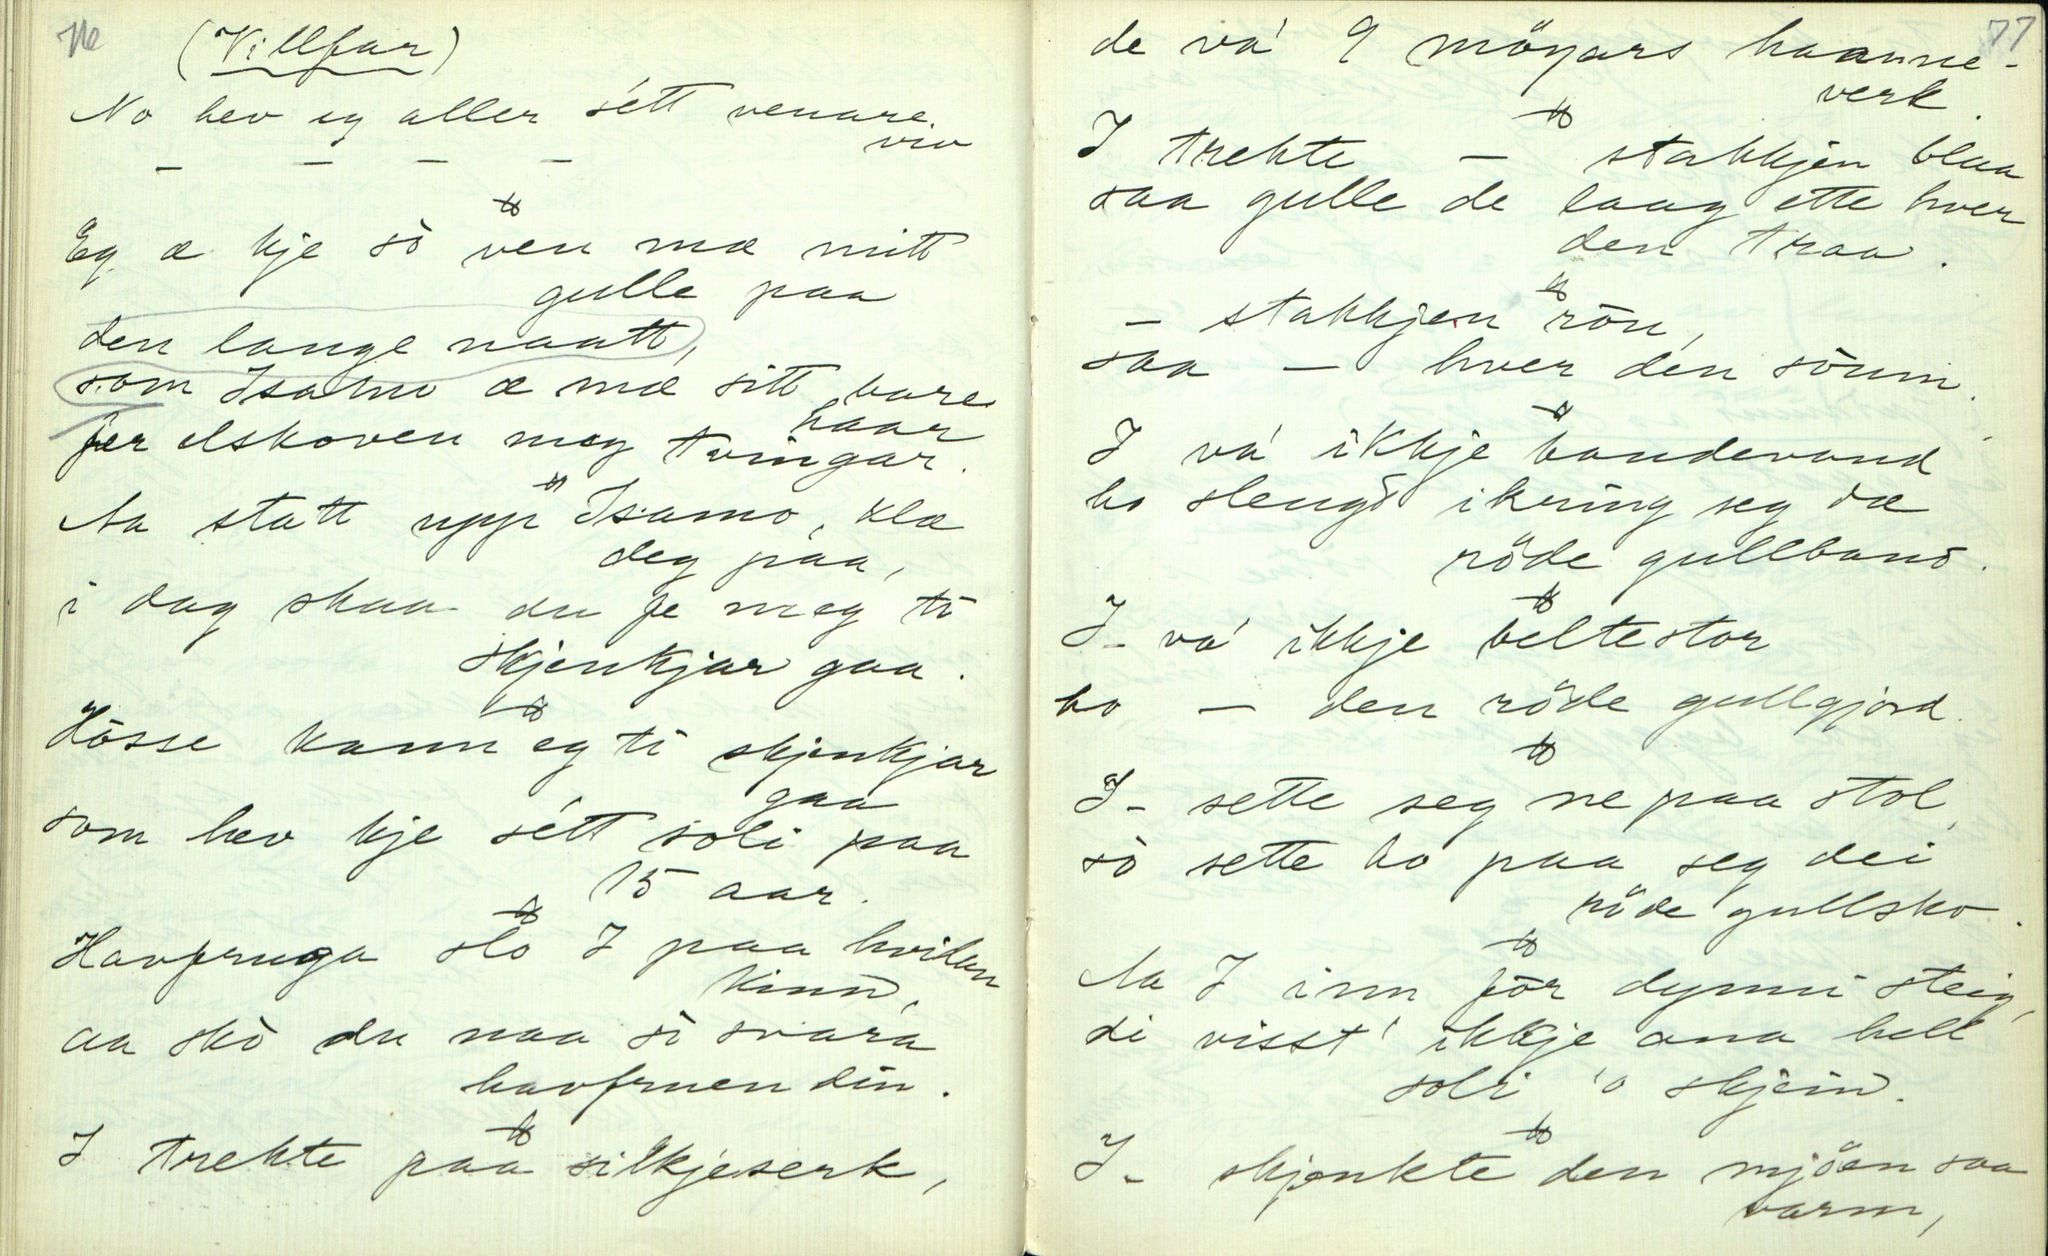 76
(Villfar)
No hev eg aller sétt venare
viv
— — — —
Eg æ kje sò ven mæ mitt
gulle paa
den lange naatt,
som Isamo æ mæ sitt bare
haar
fer elskoven meg tvingar.
Aa statt upp Isamo, klæ
deg paa,
i dag skaa du fe meg ti
skjenkjar gaa.
Hósse kann eg ti skjenkjar
gaa
som hev kje sétt soli paa
15 aar.
Havfruga slo I paa hvitan
kinn,
aa skò du naa sò svara
havfruen din.
I trekte paa silkjeserk,
77
de vá 9 möyars haanne-
verk.
I trekte — stakkjen blaa
saa gulle de laag ette hver
den traa.
— stakkjen röu,
saa — hver den söum.
I vá ikkje bandevand
ho slengd ikring seg dæ
röde gullband.
I- vá ikkje beltestor
ho — den röde gullgjord.
I- sette seg ne paa stol,
sò sette ho paa seg dei
röde gullsko.
Aa I inn för dynni steig,
di visst' ikkje ana hell
soli 'o skjein.
I- skjenkte den mjöen saa
varm,